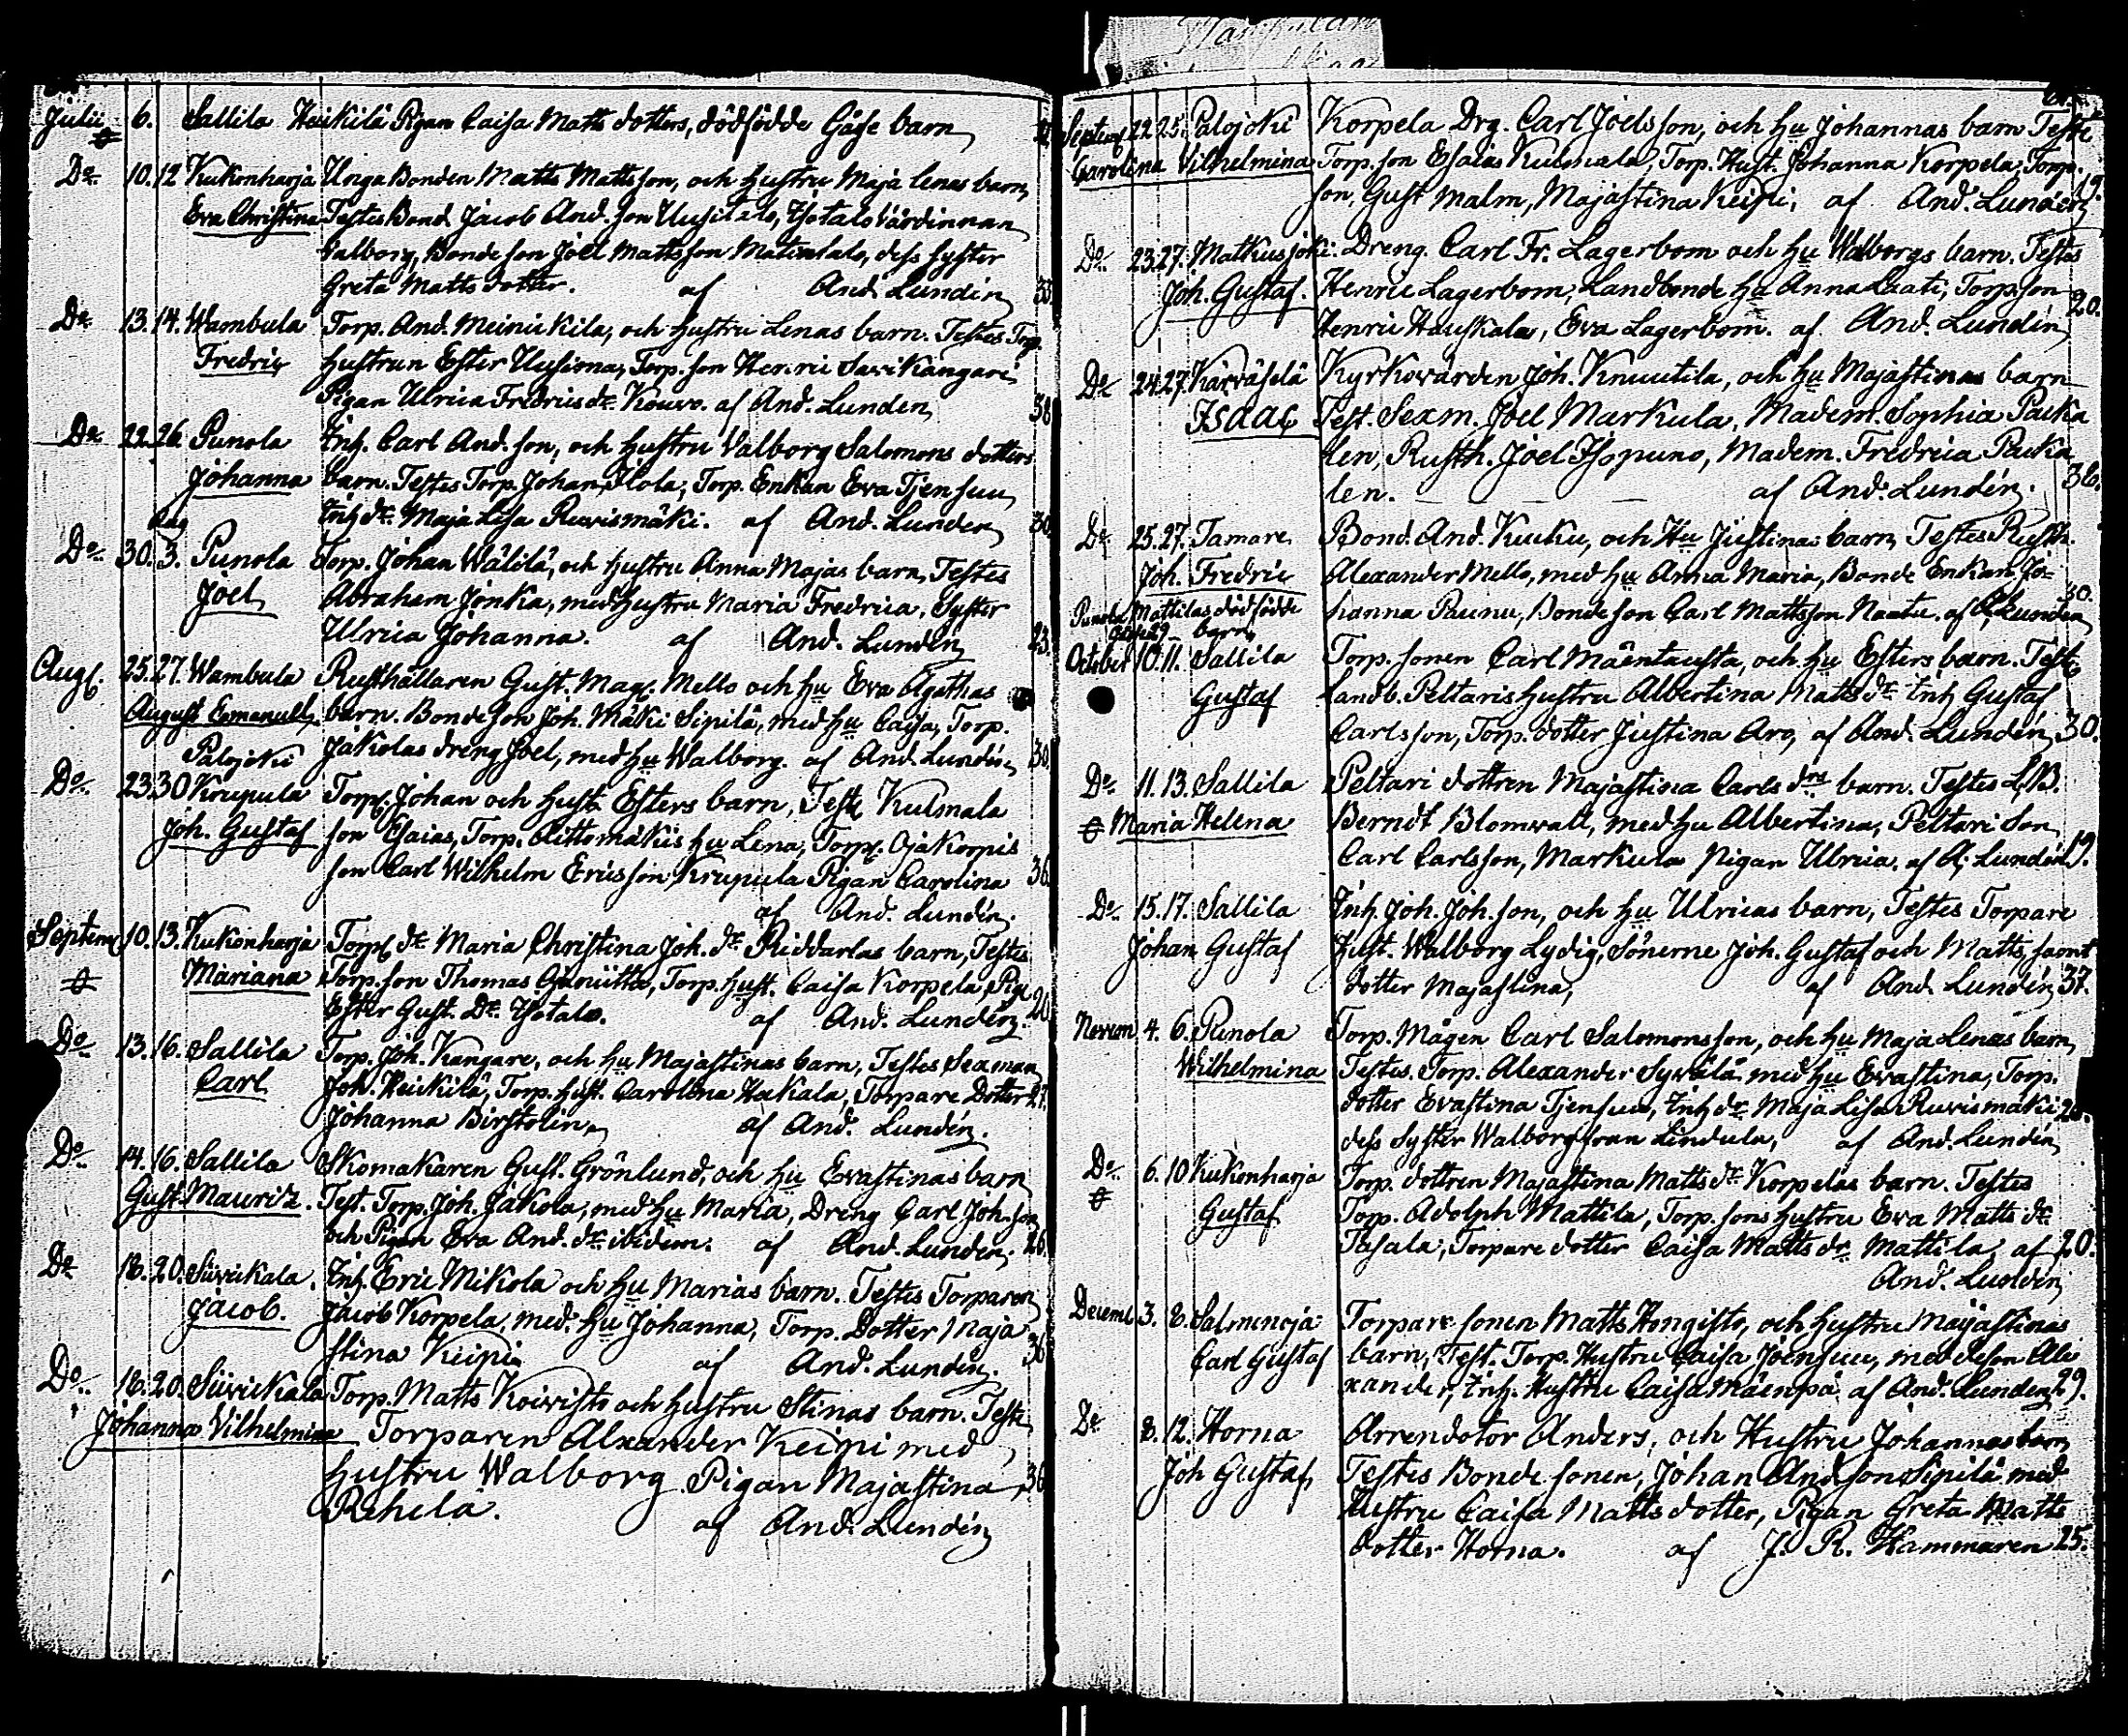 Julii 6. Sallila Heikilä Pigan Caisa Matts dotters, dödfödde Gåsse barn
Do 10. 12 Kukonharja Unga Bonden Matts Mattsson, och hustru Maja Lenas barn,
Eva Christina Testes Bond. Jacob And. son Uusitalo, Ylotalo Värdinnan
Valborg, Bonde son Joel Mattsson Matintalo, dess syster
Greta Matts dotter. af And. Lundén 33
Do 13. 14. Wambula Torp. And. Meinikkila, och hustru Lenas barn. Testes Torp.
Fredric hustrun Ester Uusiona, Torp. son Henric Savikangari,
Pigan Ulrica Fredrics dr. Kouvo. af And. Lundén 38
Do 22. 26. Punola Inh. Carl And. son, och hustru Valborg Salomons dotters
Johanna barn. Testes Torp. Johan Ilola, Torp. Enkan Eva Tjensuu,
Inh. dr. Maja Lisa Ruvismäki. af And. Lundén 30.
Aug
Do 30. 3. Punola Torp. Johan Wälilä, och hustru Anna Majas barn, Testes
Joel Abraham Jonka, med hustru Maria Fredrica, Syster
Ulrica Johanna. af And. Lundén 23.
Aug. 25. 27. Wambula Rusthållaren Gust. Mags. Mello och hu Eva Agathas
August Emanuell barn. Bonde son Joh. Mäki Sipilä, med hu Caisa, Torp.
Jakolas dreng Joel, med hu Walborg. af And. Lundén 30.
Palojoki
Do 23 30 Krupula Torp. Johan och Hust. Esters barn, Teste Kulmala
Joh. Gustaf son Esaias, Torp. Aittomäkis hu Lena, Torp. Ojakorpis
son Carl Wilhelm Ericsson, Krupula Pigan Carolina 36.
af And. Lundén.
Septem 10. 13. Kukonharja Torp. dr. Maria Christina Joh. dr. Riddarlas barn, Testes
Mariana Torp. son Thomas Ojaniitto, Torp. hust. Caisa Korpela, Pig.
Ester Gust. Dr. Ylotalo. af And. Lundén. 20.
Do 13. 16. Sallila Torp. Joh. Kangare, och hu Majastinas barn, Testes Sexman
Carl Joh. Heikilä, Torp. hust. Carolina Hakala, Torpare Dotter 27.
Johanna Birstolin, af And. Lundén.
Do 14. 16. Sallila Skomakaren Gust. Grönlund, och hu Evastinas barn
Gust. Mauritz. Test. Torp. Joh. Jakola, med hu Maria, Dreng Carl Joh. son
och Pigan Eva And. dr. ibidem. af And. Lundén. 26.
Do 18. 20. Siivikkala. Inh. Eric Mikola och hu Marias barn. Testes Torparen
Jacob. Jacob Korpela, med hu Johanna, Torp. Dotter Maja
stina Keipi af And. Lundén. 36
Do 18. 20. Siivikkala Torp. Matts Koivisto och hustru Stinas barn. Teste
Johanna Vilhelmina Torparen Alexander Keipi med
hustru Walborg Pigan Majastina 36
Rehela. af And. Lundén
Septem 22. 25. Palojoki Korpela Drg. Carl Joelsson, och hu Johannas barn Teste
Carolina Vilhelmina Torp. son Esaias Kulmala, Torp. Hust. Johanna Korpela, Torp.
son, Gust Malm, Majastina Keipi, af And. Lundén 19.
Do 23. 27. Matkusjoki: Dreng. Carl Fr. Lagerbom och hu Walborgs barn. Testes
Joh. Gustaf. Henric Lagerbom, Landbonde hu Anna Laati, Torp. son 20.
Henric Hauskala, Eva Lagerbom. af And. Lundén
Do 24. 27. Karväselä Kyrkovärden Joh. Knuutila, och hu Majastinas barn
Isaac Test. Sexm. Joel Markula, Madem. Sophia Packa
len, Rusth. Joel Isopuno, Madem. Fredrica Packa
len. af And. Lundén. 36.
Do 25. 27. Tamare Bond. And. Kuuku, och Hu Justinas barn, Testes Rusth.
Joh. Fredric Alexander Mello, med hu Anna Maria, Bonde Enkan Jo- 30.
Punola Mattilas dödfödde hanna Paunu, Bonde son Carl Mattsson Naatu. af A. Lundén
barn
October 10. 11. Sallila Torp. sonen Carl Mäentausta, och hu Esters barn. Teste
Gustaf Landb. Peltaris hustru Albertina Matts dr. Inh. Gustaf
Carlsson, Torp. dotter Justina Aro, af And. Lundén 30.
Do 11. 13. Sallila Peltari dottren Majastina Carls drs barn. Testes L.B.
Maria Helena Berndt Blomvall, med hu Albertina, Peltari Son
Carl Carlsson, Markula Pigan Ulrica. af A. Lundén 19.
Do 15. 17. Sallila Inh. Joh. Joh. son, och hu Ulricas barn, Testes Torpare
Johan Gustaf Hust. Walborg Lydig, Sönerne Joh. Gustaf och Matts, samt
dotter Majastina, af And. Lundén 37.
Novem 4. 6. Punola Torp. Mågen Carl Salomonsson, och hu Maja Lenas barn,
Wilhelmina Testes. Torp. Alexander Sywälä med hu Evastina, Torp.
dotter Evastina Tjensuu, Inh. dr. Maja Lisa Ruvismäki 20.
dess Syster Walborg från Lindula, af And. Lundén
Do 6. 10 Kukonharja Torp. dottren Majastina Matts dr. Korpelas barn. Testes
Gustaf Torp. Adolph Mattila, Torp. sons hustru Eva Matts dr.
Tasala, Torpare dotter Caisa Matts dr. Mattila, af 20.
And. Lundén
Decemb 3. 8. Salmenoja Torpare sonen Matts Hongisto, och hustru Majastinas
Carl Gustaf barn, Test. Torp. Hustru Caisa Joensuu, med deson Ale
xander, Inh. Hustru Caisa Mäenpä af And. Lundén 29.
Do 8. 12. Horna Arrendator Anders, och Hustru Johannas barn
Joh Gustaf, Testes Bonde sonen, Johan And. son Sipilä med
Hustru Caisa Matts dotter, Pigan Greta Matts
dotter Horna. af J. R. Hammaren 25.